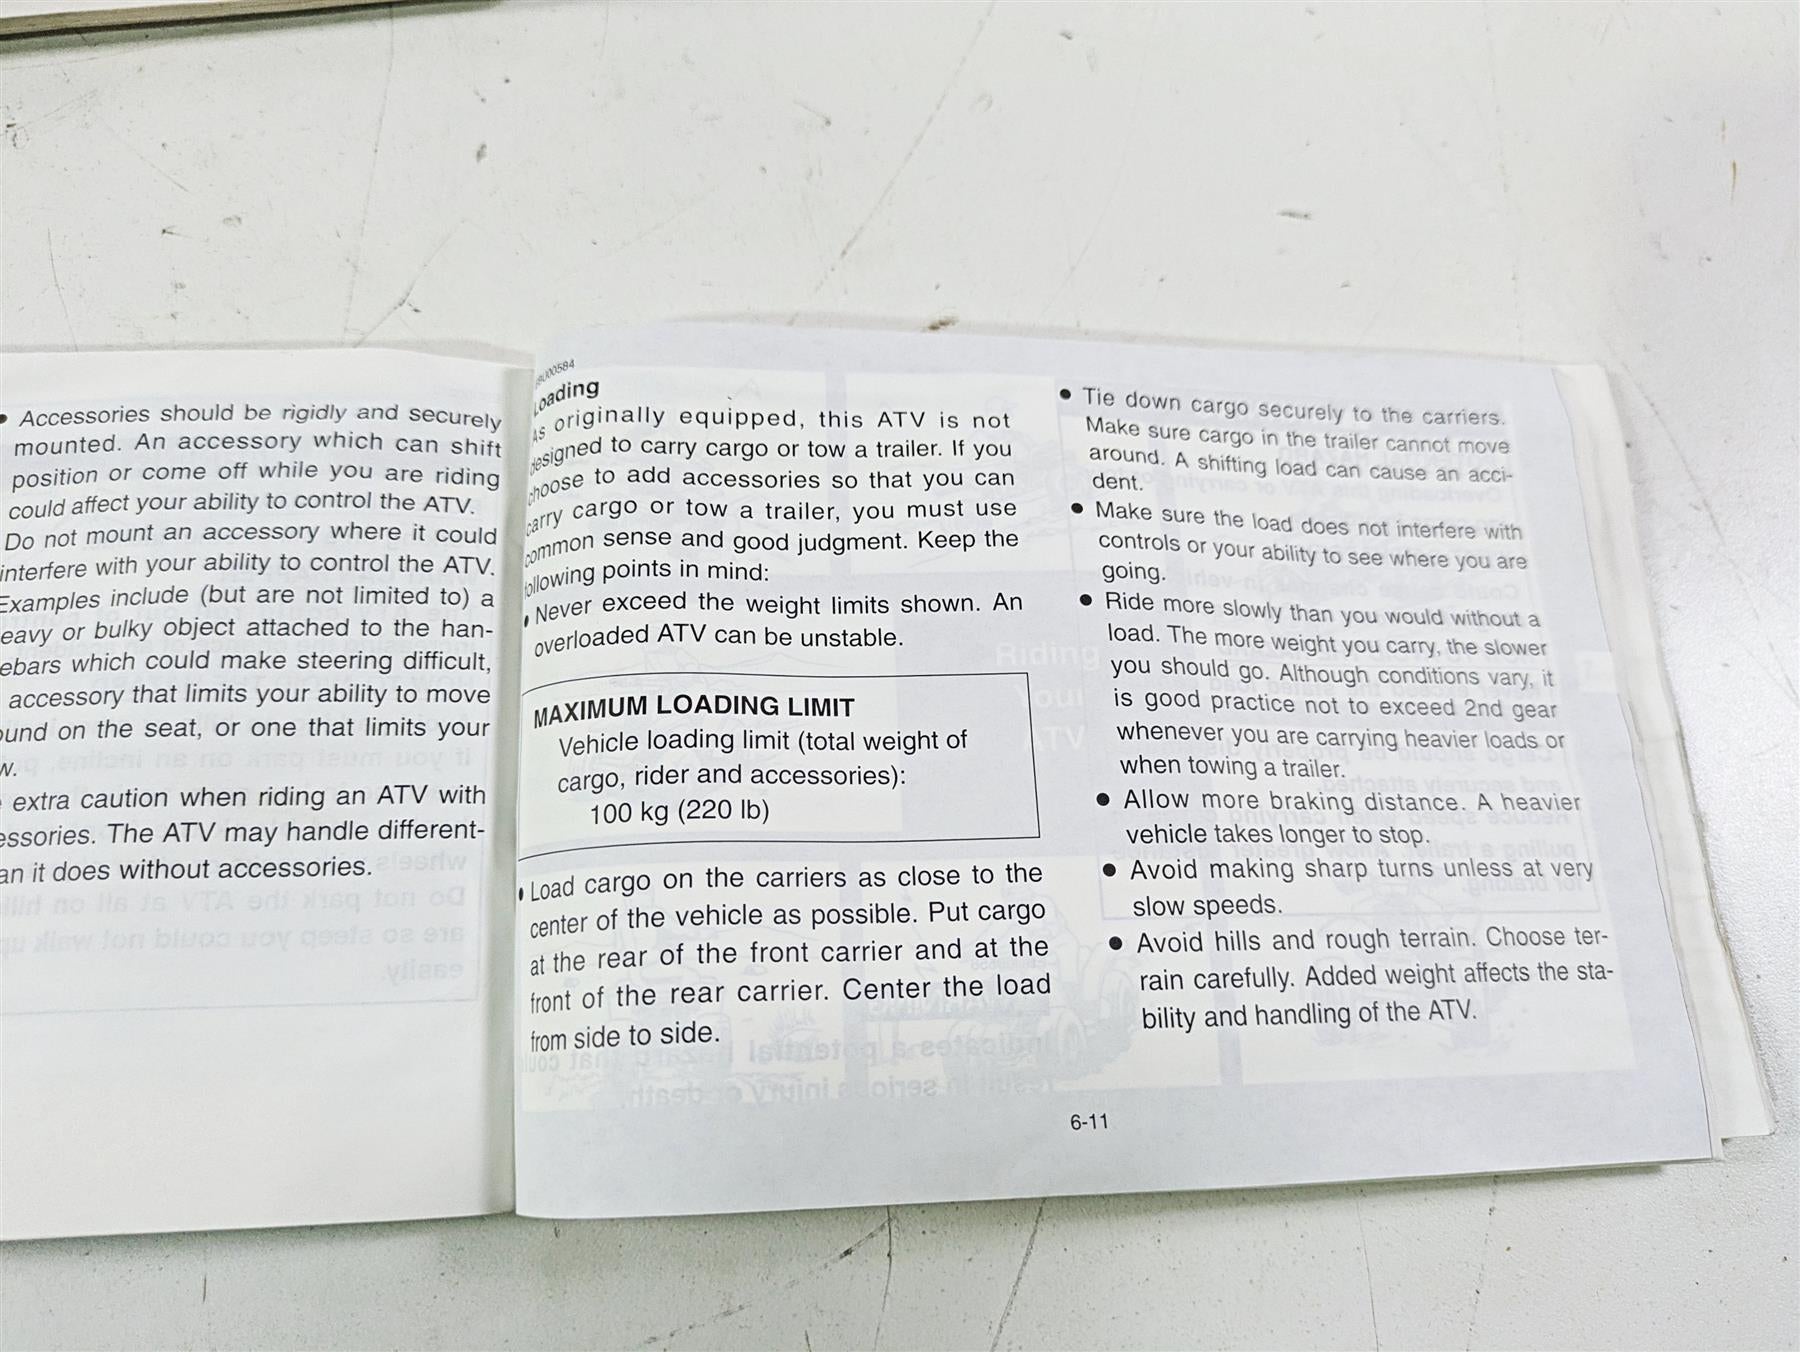 ● Accessories should be rigidly and securely
mounted. An accessory which can shift
position or come off while you are riding
could affect your ability to control the ATV.
Do not mount an accessory where it could
interfere with your ability to control the ATV.
Examples include (but are not limited to) a
eavy or bulky object attached to the han-
ebars which could make steering difficult,
accessory that limits your ability to move
ound on the seat, or one that limits your
w.
extra caution when riding an ATV with
essories. The ATV may handle different-
an it does without accessories.
EBU00584
Loading
As originally equipped, this ATV is not
designed to carry cargo or tow a trailer. If you
choose to add accessories so that you can
carry cargo or tow a trailer, you must use
common sense and good judgment. Keep the
following points in mind:
● Never exceed the weight limits shown. An
overloaded ATV can be unstable.
MAXIMUM LOADING LIMIT
Vehicle loading limit (total weight of
cargo, rider and accessories):
100 kg (220 lb)
● Load cargo on the carriers as close to the
center of the vehicle as possible. Put cargo
at the rear of the front carrier and at the
front of the rear carrier. Center the load
from side to side.
● Tie down cargo securely to the carriers.
Make sure cargo in the trailer cannot move
around. A shifting load can cause an acci-
dent.
● Make sure the load does not interfere with
controls or your ability to see where you are
going.
● Ride more slowly than you would without a
load. The more weight you carry, the slower
you should go. Although conditions vary, it
is good practice not to exceed 2nd gear
whenever you are carrying heavier loads or
when towing a trailer.
● Allow more braking distance. A heavier
vehicle takes longer to stop.
● Avoid making sharp turns unless at very
slow speeds.
● Avoid hills and rough terrain. Choose ter-
rain carefully. Added weight affects the sta-
bility and handling of the ATV.
6-11